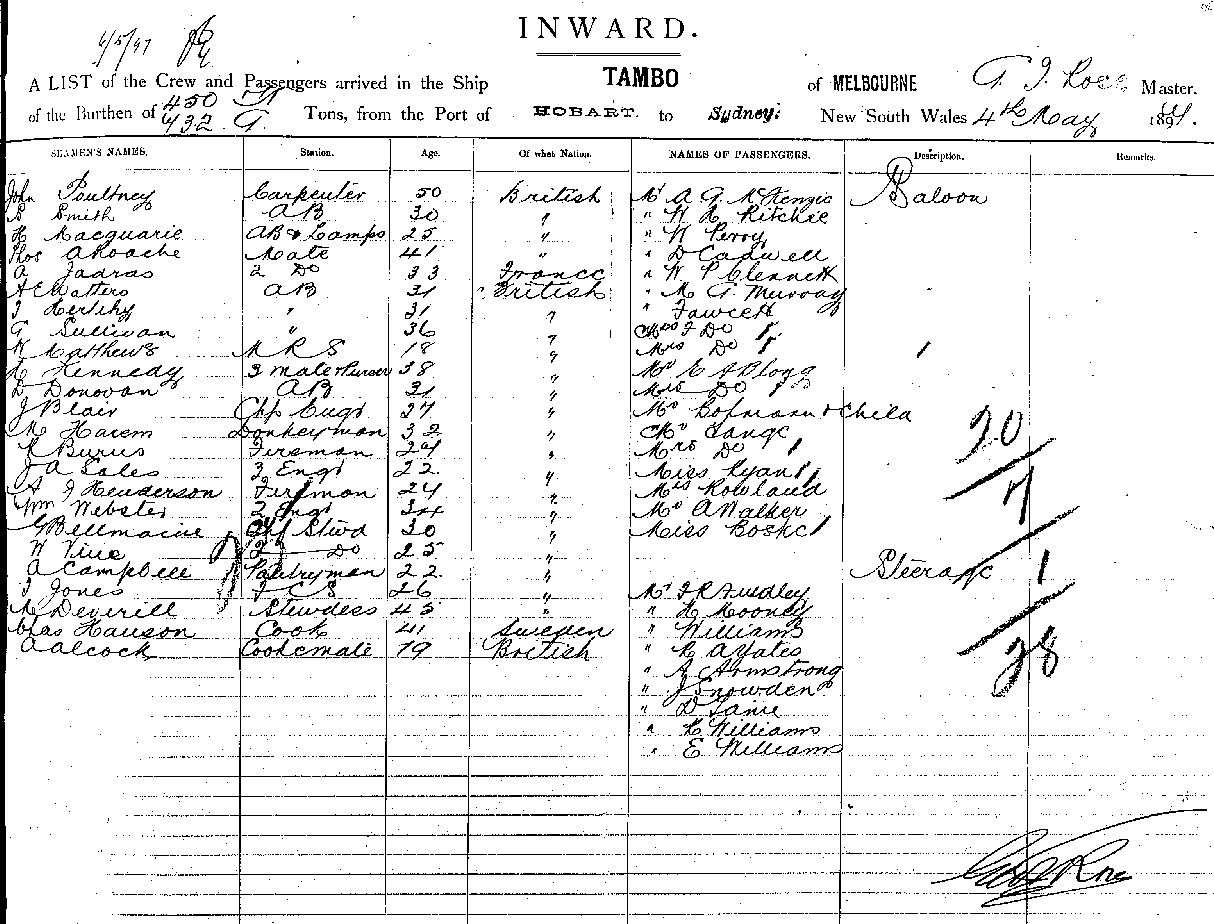 INWARD.
A LIST of the Crew and Passengers arrived in the Ship TAMBO of MELBOURNE Master.
of the Burthen of 450 432 G. Tons, from the Port of HOBART. to Sydney: New South Wales 4th May
SEAMEN'S NAMES. Station. Age. Of what Nation. NAMES OF PASSENGERS. Description. Remarks.
John Poultney Carpenter 50 British Mr A G McKenzie Saloon
S Smith AB 30 " " W A Ritchie
H Macquarie AB & Lamps 25 " " W Perry
Thos Mate 41 " " D Cadwell
A Jadras 2 Do 33 France " W P Clennett
Watters AB 31 British " M G Murray
" 31 " " Fawcett
G Sullivan " 36 " Do
W Matthews M R S 18 " Mrs Do 1
H Kennedy 3 mate & Purser 38 " Mr C A Blogg
D Donovan AB 31 " Mrs Do
J Blair Chf Engr 27 " Mrs Bofmann & Child
M Harem Donkeyman 32 " Lange 20
Burns Fireman 29 " Mrs Do 1
J A Sales 3 Engr 22 " Miss Ryan 7
A J Henderson Fireman 24 " Rowland
Wm Webster 2 Engr 34 " A Walker
G Bellmaine Chf Stwd 30 " Miss
W Vine 2 Do 25 "
A Campbell Pantryman 22 " Steerage 1
J Jones F C S 26 " Mr
M Deverill Stewdess 45 " " H Mooney
Chas Hanson Cook 41 Sweden " Williams
A Alcock Cooks mate 19 British " Yates 28
" A Armstrong
" J Snowden
" D
" Williams
" E Williams